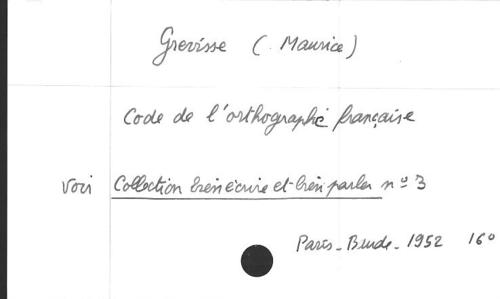 Grevisse (Maurice)
Code de l'orthographe française
voir Collection bien écrire et bien parler nº 3
Paris - Baude - 1952 16º